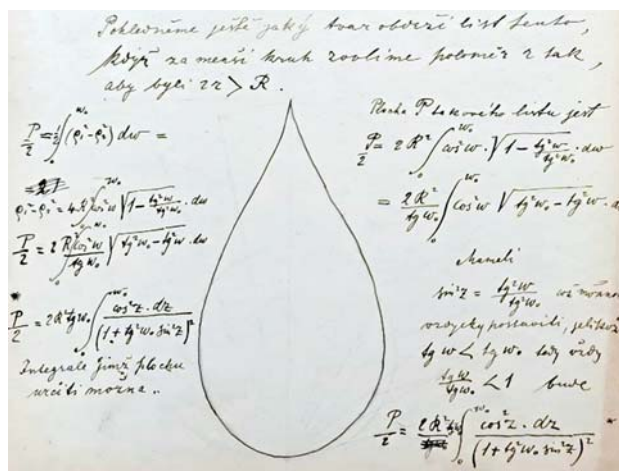 Pohledněme ještě jaký tvar obdrží list tento,
když za menší kruh zvolíme poloměr r tak,
aby byli 2r > R.
P/2 = ½ ∫₀^{w₀} (ρ₁² - ρ₂²) dw =
ρ₁² - ρ₂² = 4 R² cos² w √(1 - tg² w / tg² w₀) · dw
P/2 = 2 ∫₀^{w₀} R² cos² w / tg w₀ √(tg² w₀ - tg² w) · dw
P/2 = 2R² tg w₀ ∫₀^{w₀} cos² z · dz / (1 + tg² w₀ sin² z)²
Integrale jimž plochu
určiti možna..
Plocha P takového listu jest
P/2 = 2 R² ∫₀^{w₀} cos² w · √(1 - tg² w / tg² w₀) · dw
= 2 R² / tg w₀ ∫₀^{w₀} cos² w √(tg² w₀ - tg² w · d
Mámeli
sin² z = tg² w / tg² w₀ což možno
postaviti, jelikož
tg w < tg w₀ tedy vždy
tg w / tg w₀ < 1 bude
P/2 = 2R² tg ∫₀^{w₀} cos² z · dz / (1 + tg² w₀ sin² z)²